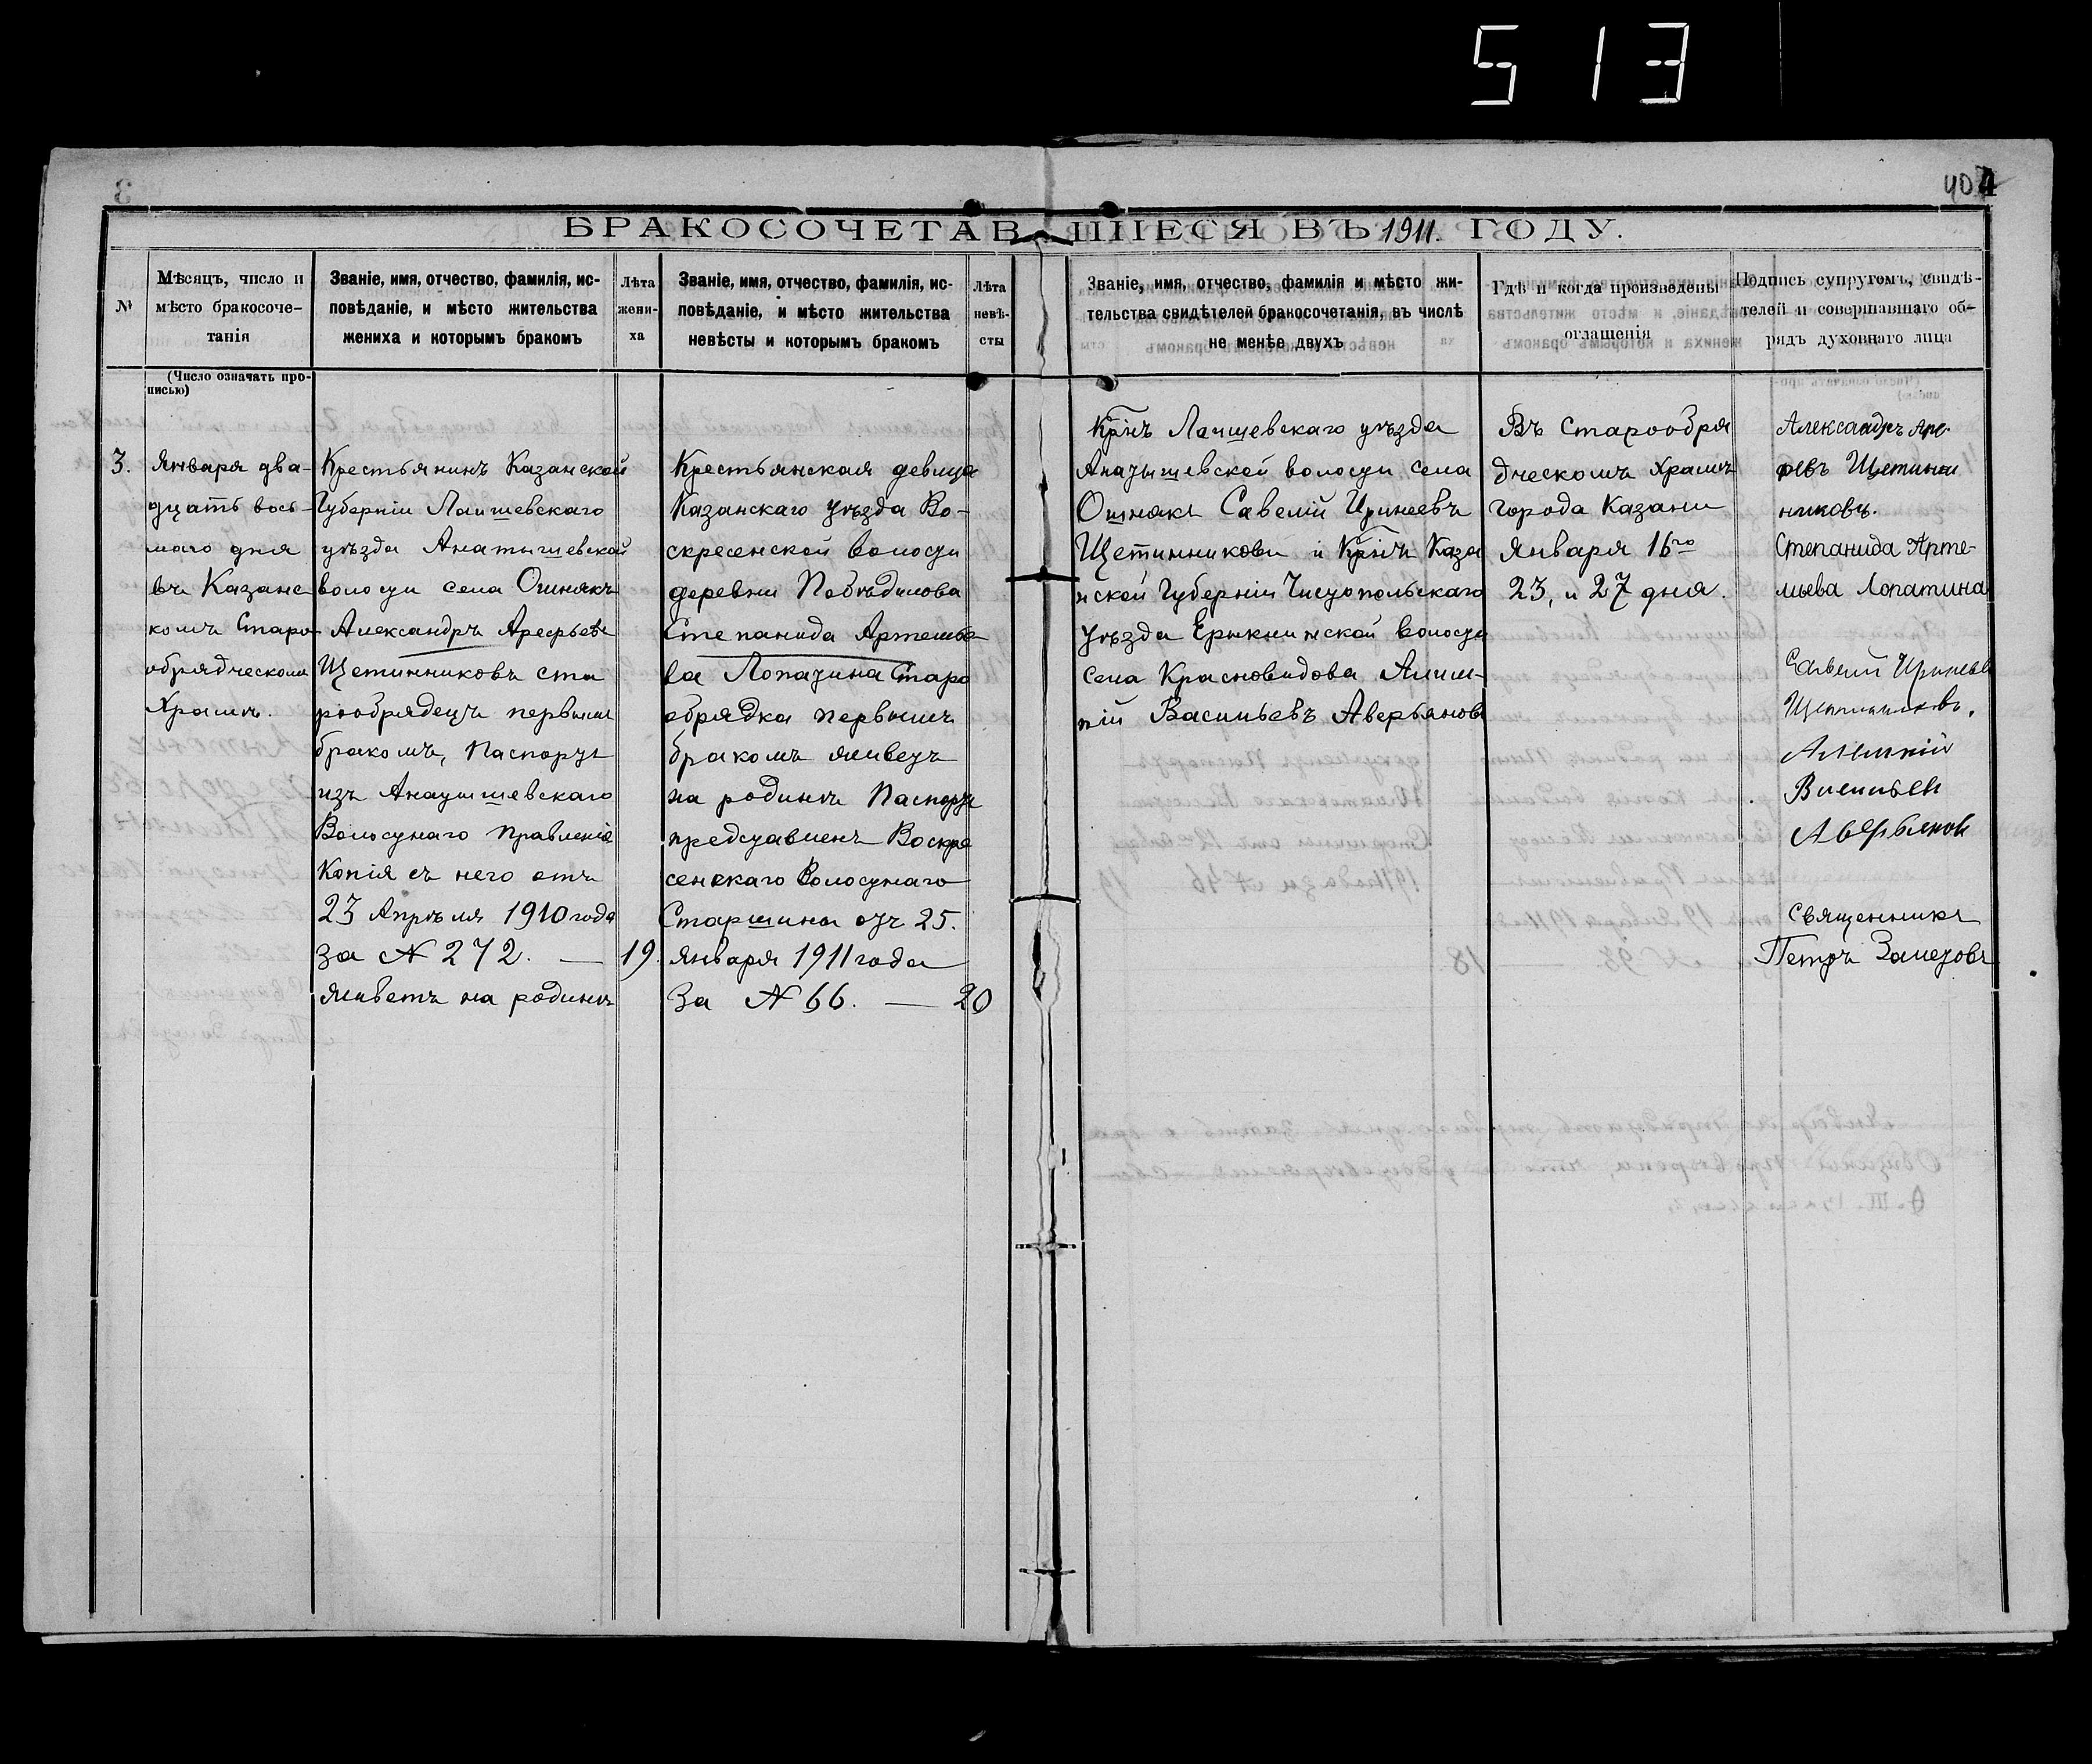 513
404
БРАКОСОЧЕТАВШІЕСЯ ВЪ 1911. ГОДУ.
№
Мѣсяцъ, число и
мѣсто бракосоче-
танія
Званіе, имя, отчество, фамилія, ис-
повѣданіе, и мѣсто жительства
жениха и которымъ бракомъ
Лѣта
жени-
ха
Званіе, имя, отчество, фамилія, ис-
повѣданіе, и мѣсто жительства
невѣсты и которымъ бракомъ
Лѣта
невѣ-
сты
Званіе, имя, отчество, фамилія и мѣсто жи-
тельства свидѣтелей бракосочетанія, въ числѣ
не менѣе двухъ
Гдѣ и когда произведены
оглашенія
Подпись супруговъ, свидѣ-
телей и совершавшаго об-
рядъ духовнаго лица
(Число означать про-
писью)
3.
Января два-
дцать вось-
маго дня
въ Казанс
комъ Старо-
обрядческомъ
Храмѣ.
Крестьянинъ Казанской
Губерніи Лаишевскаго
уѣзда Анатышевской
волости села Ошнякъ
Александръ Арефьевъ
Щетинниковъ ста
рообрядецъ первымъ
бракомъ, Паспортъ
изъ Анатышевскаго
Волостнаго Правленія
Копія съ него отъ
23 Апрѣля 1910 года
за № 272. — 19.
живетъ на родинѣ
Крестьянская девица
Казанскаго уѣзда Во-
скресенской волости
деревни Побѣдилова
Степанида Артемье
ва Лопатина Старо
обрядка первымъ
бракомъ живетъ
на родинѣ Паспортъ
представленъ Воскре
сенскаго Волостнаго
Старшины отъ 25.
января 1911 года
за № 66. — 20
Кр͞нъ Лаишевскаго уѣзда
Анатышевской волости села
Ошняка Савелій Иринеевъ
Щетинниковъ и Кр͞нъ Каза
нской Губерніи Чистопольскаго
уѣзда Ерыклинской волости
села Красновидова Алим-
пій Васильевъ Аверьяновъ
Въ Старообря
дческомъ Храмѣ
города Казани
Января 16го
23, и 27 дня.
Александръ Аре-
февъ Щетин
никовъ.
Степанида Арте-
мьева Лопатина
Савелій Иринеевъ
Щетинниковъ.
Алимпій
Васильевъ
Аверьяновъ
Священникъ
Петръ Залетовъ